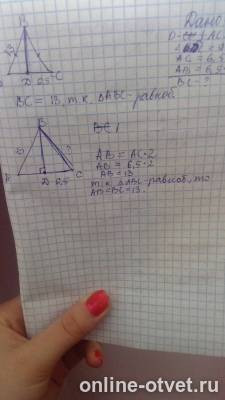 B
Дано
D
A
AC = 6,5
AB = 6,5
BC - ?
D 6,5 C
BC = 13, т.к. ΔABC - равноб.
B
AB = AC · 2
AB = 6,5 · 2
AB = 13
т.к. ΔABC - равноб, то
AB = BC = 13.
A D 6,5 C
online-otvet.ru